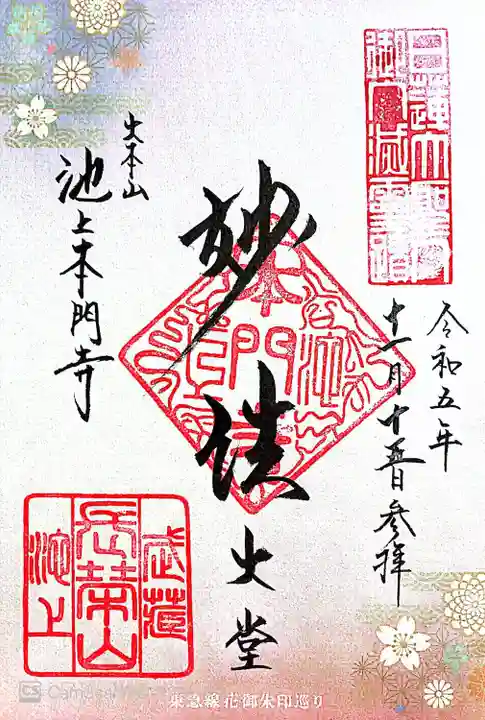 日蓮大聖人
御入滅霊蹟
令和五年
十一月十五日参拝
妙法
大堂
大本山
池上本門寺
武蔵
長栄山
池上
東急線花御朱印巡り
CS CamScanner